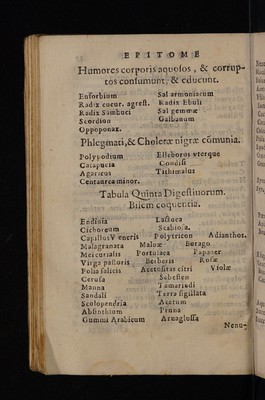 EPITOME
Humores corporis aquosos, & corrup-
tos consumunt, & educunt.
Enforbium Sal armoniacum
Radix cucur. agrest. Radix Ebuli
Radix Sambuci Sal gemmæ
Scordion Galbanum
Oppoponax.
Phlegmati, & Choleræ nigræ cõmunia.
Polypodium Elleboros vterque
Catapucia Condisi
Agaricus Tithimalus
Centaurea minor.
Tabula Quinta Digestiuorum.
Bilem coquentia.
Endiuia Lactuca
Cichoreum Scabiosa.
Capillus Veneris Polytricon Adianthos.
Malagranata Maluæ Borago
Mercurialis Portulaca Papauer
Virga pastoris Berberis Rosæ
Folia salicis Acetositas citri Violæ
Cerusa Sebesten
Manna Tamarindi
Sandali Terra sigillata
Scolopendria Acetum
Absinthium Pruna
Gummi Arabicum Arnaglossa
Nenu-